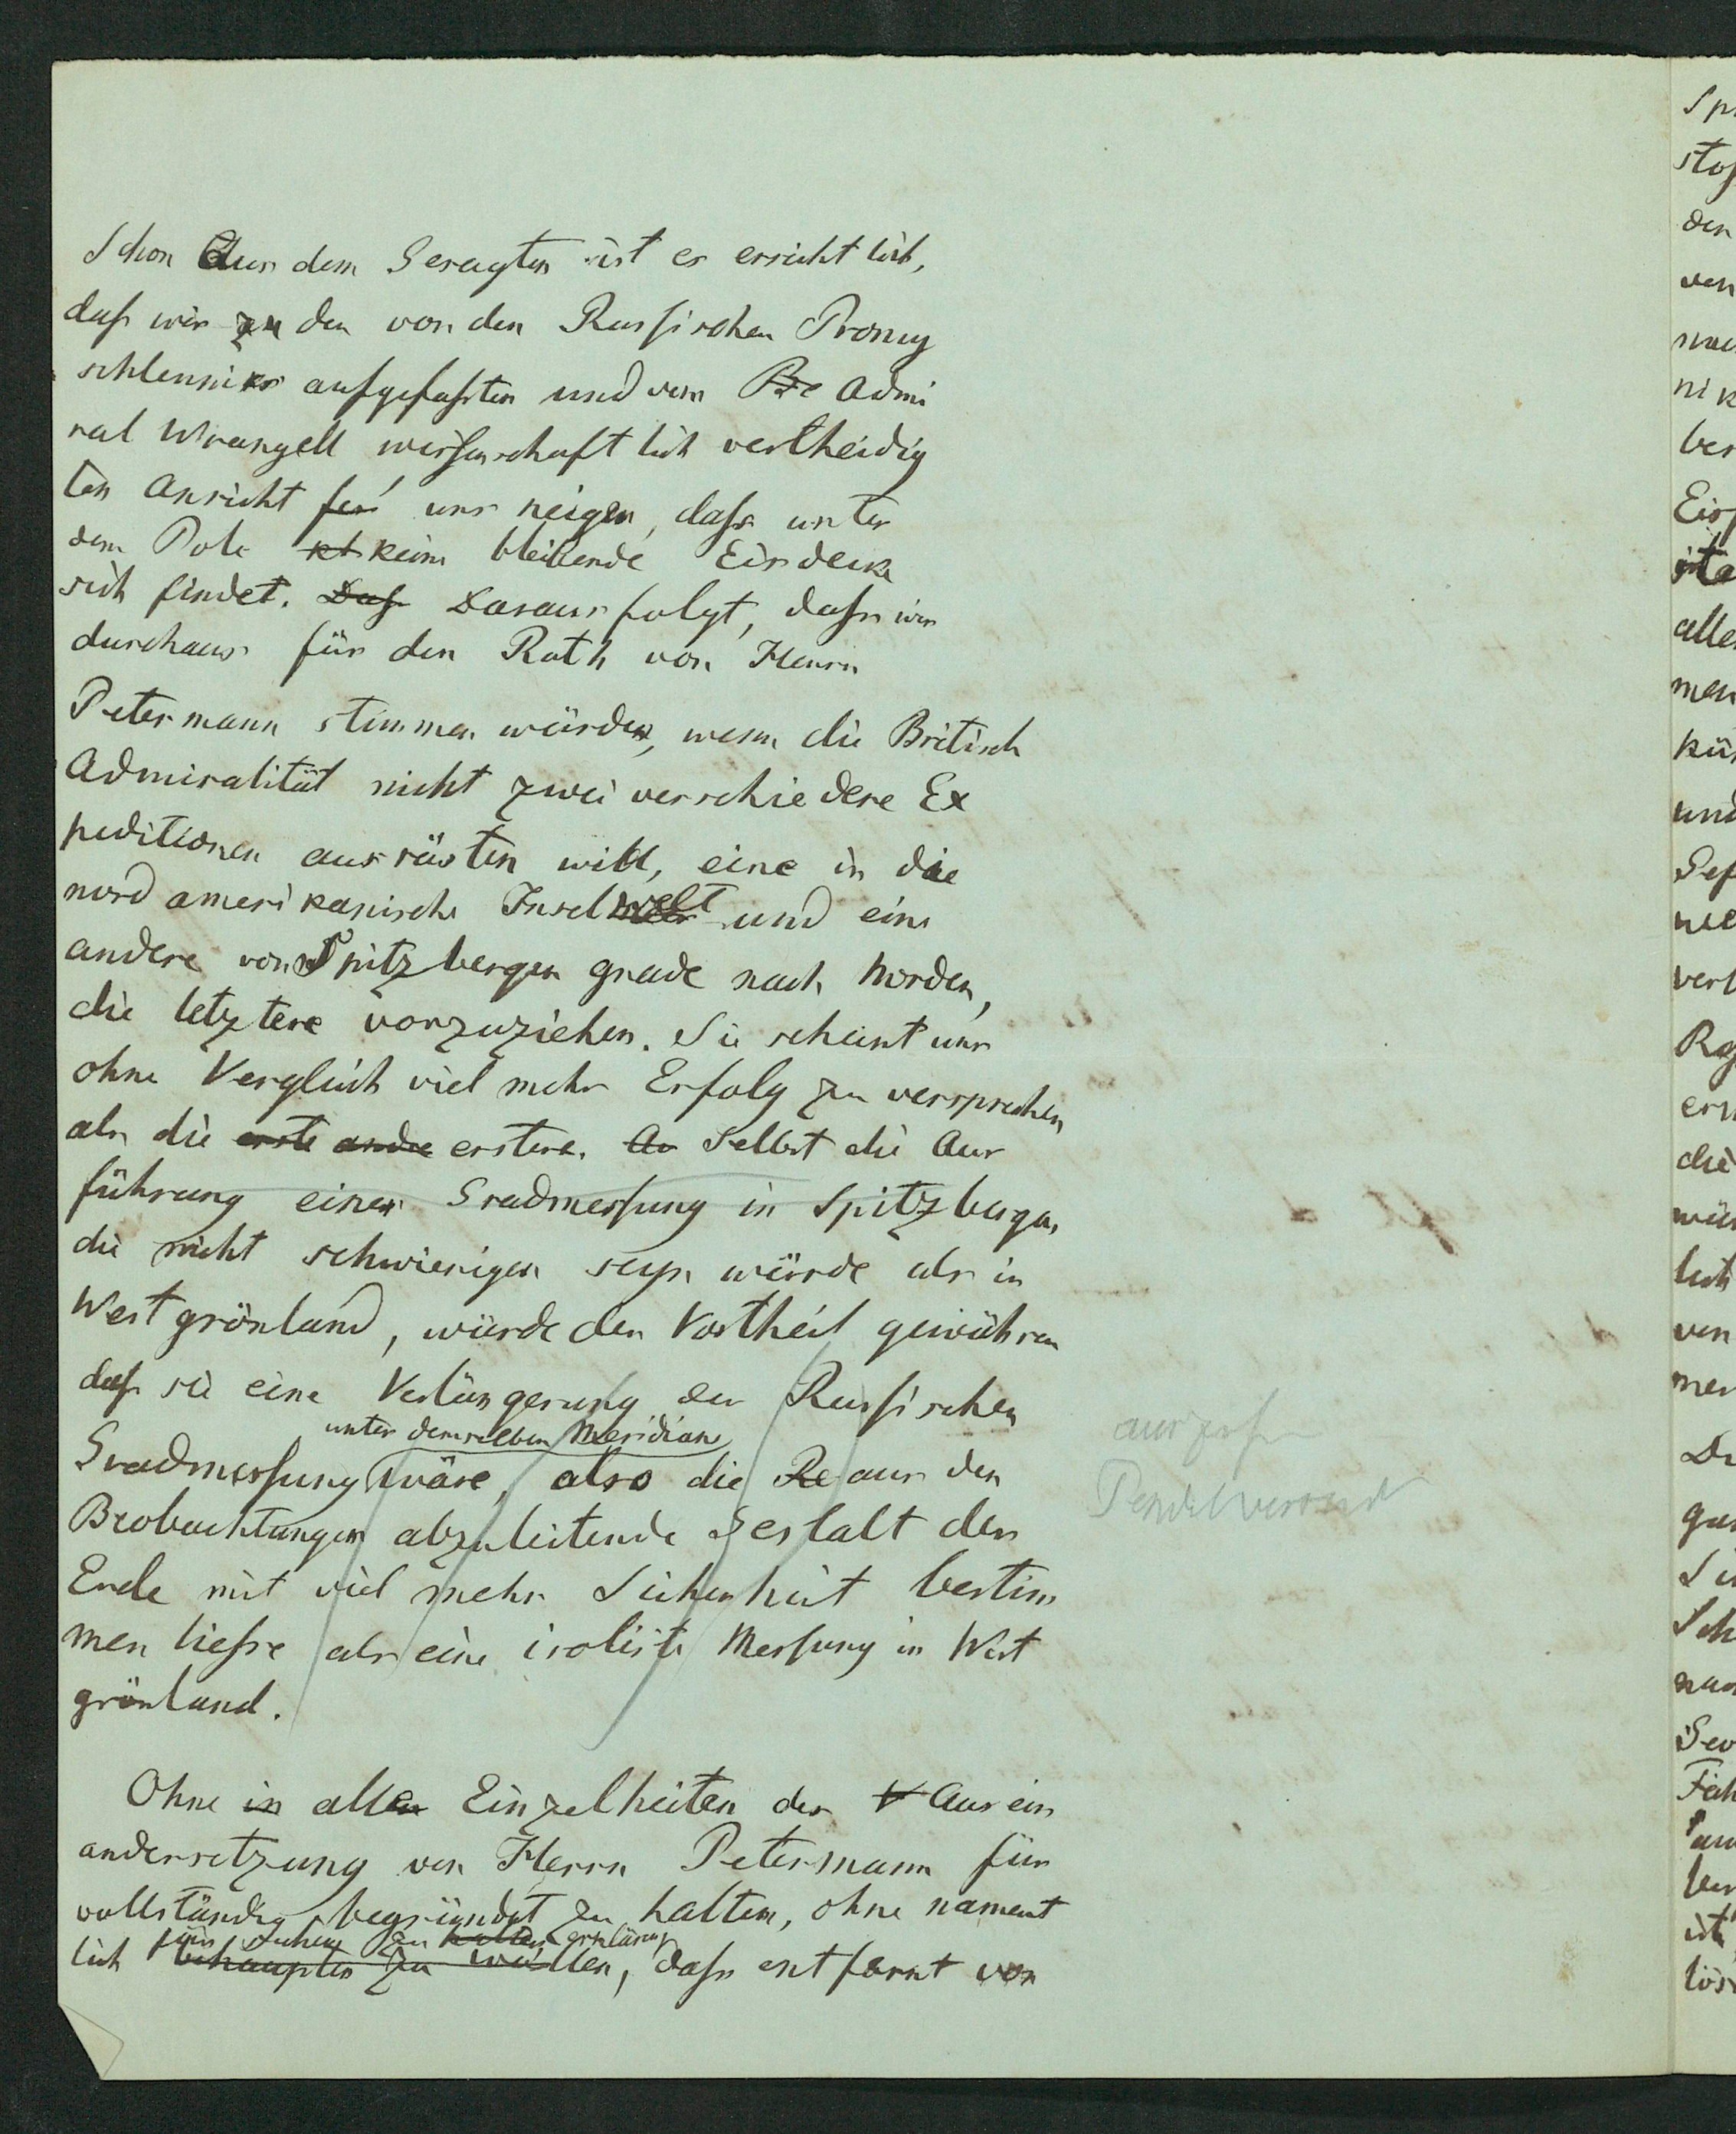 Schon Aus dem Gesagten ist es ersichtlich,
daß wir zu der von den Russischen Promy
schlenniks aufgefaßten und vom Pre Admi
ral Wrangell wissenschaftlich vertheidig
ten Ansicht uns neigen, dass unter
dem Pole kt keine bleibende Eisdecke
sich findet. Daß Daraus folgt, dass wir
durchaus für den Rath von Herrn
Petermann stimmen würden, wenn die Britisch
Admiralität nicht zwei verschiedene Ex
peditionen ausrüsten will, eine in die
nordamerikanische Inselwelt und eine
andere von Spitzbergen grade nach Norden,
die letztere vorzuziehen. Sie scheint uns
ohne Vergleich viel mehr Erfolg zu versprechen
als die erste andre erstere. An Selbst die Aus
führung einer Gradmessung in Spitzbergen,
die nicht schwieriger seyn würde als in
Westgrönland, würde den Vortheil gewähren
daß sie eine Verlängerung der Russischen
unter demselben Meridian
Gradmessung wäre, also die Re aus den
Beobachtungen abzuleitende Gestalt der
Erde mit viel mehr Sicherheit bestim
men liesse als eine isolirte Messung in West
grönland.
Ohne in allen Einzelheiten der V Ausein
andersetzung von Herrn Petermann für
vollständig begründet zu halten, ohne nament
für sicher zu halten erklären
lich behaupten zu wollen, dass entfernt von
Sp
stoß
den
von
nik
ber
Eis
alle
und
Ges
verl
die
lich
von
Sch